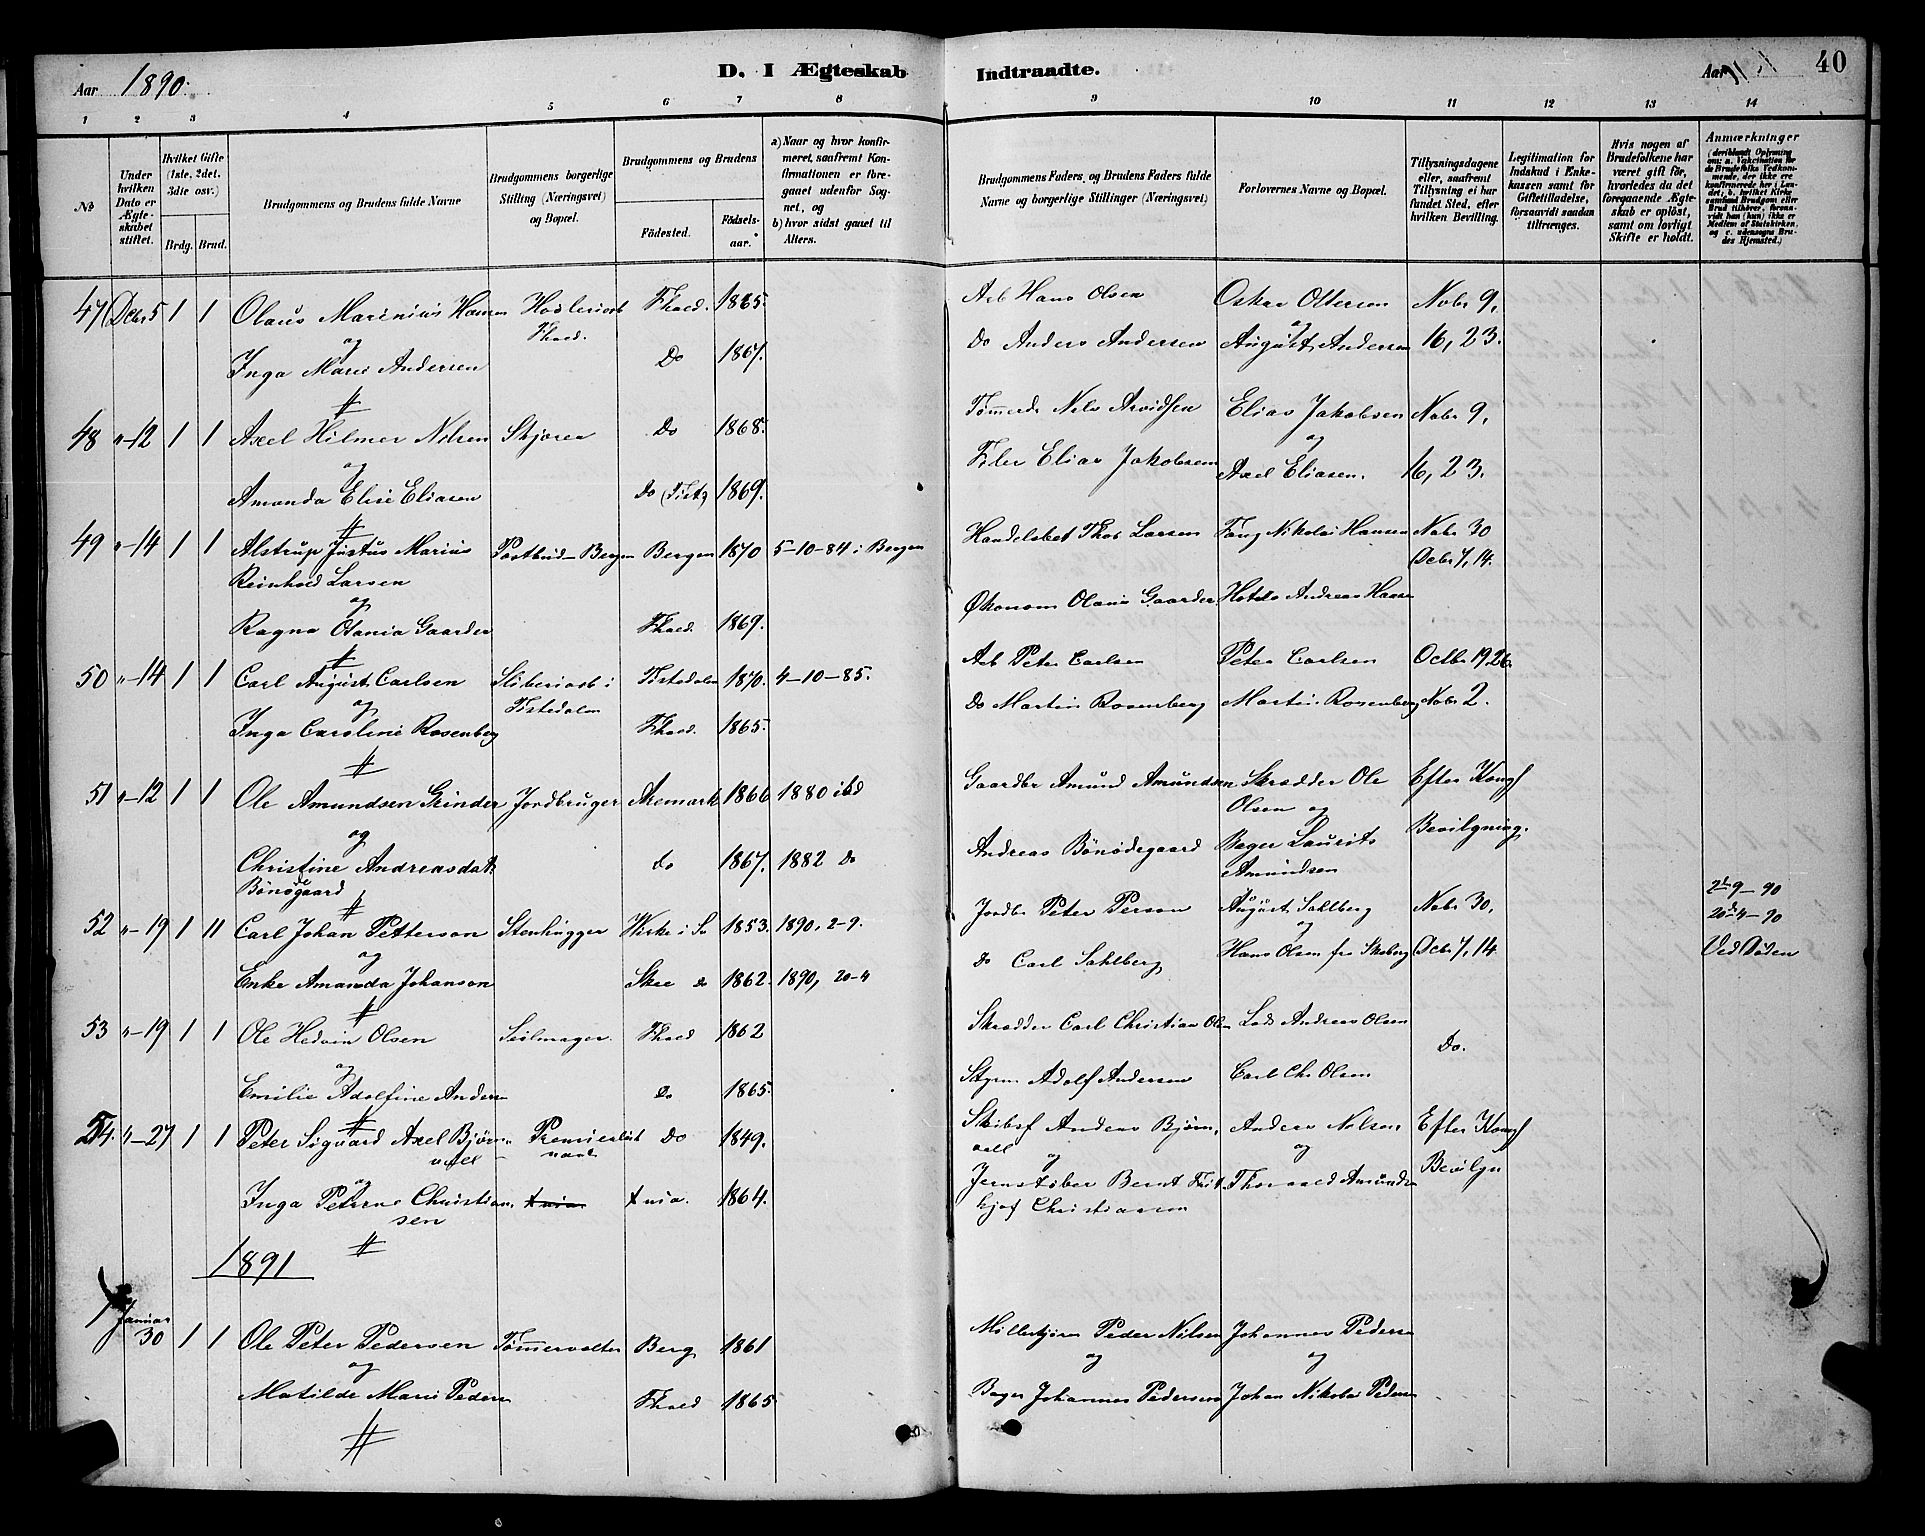 Aar 1890.
D. I Ægteskab Indtraadte.
Aar
40
1 2 3 4 5 6 7 8 9 10 11 12 13 14
No
Under hvilken Dato er Ægteskabet stiftet.
Hvilket Gifte (1ste, 2det, 3die osv.)
Brdg. Brud.
Brudgommens og Brudens fulde Navne
Brudgommens borgerlige Stilling (Næringsvei) og Bopæl.
Brudgommens og Brudens
Födested.
Födselsaar.
a) Naar og hvor konfirmeret, saafremt Konfirmationen er foregaaet udenfor Sognet, og
b) hvor sidst gaaet til Alters.
Brudgommens Faders, og Brudens Faders fulde Navne og borgerlige Stillinger (Næringsvei)
Forlovernes Navne og Bopæl.
Tillysningsdagene eller, saafremt Tillysning ei har fundet Sted, efter hvilken Bevilling.
Legitimation for Indskud i Enkekassen samt for Giftetilladelse, forsaavidt saadan tiltrænges.
Hvis nogen af Brudefolkene har været gift för, hvorledes da det foregaaende Ægteskab er oplöst, samt om lovligt Skifte er holdt.
Anmærkninger (deriblandt Oplysning om: a. Vakcination for de Brudefolks Vedkommende, der ikke ere konfirmerede her i Landet; b. hvilket Kirkesamfund Brudgom eller Brud tilhörer, forsaavidt han (hun) ikke er Medlem af Statskirken, og c. udensogns Brudes Hjemsted.)
47 Dcbr 5 1 1 Olaus Marinius Hansen Høvleriarb Fhald. 1865. Arb Hans Olsen Oskar Ottersen Nobr 9,
og Fhald. og
Inga Marie Andersen Do 1867. Do Anders Andersen August Andersen 16, 23.
48 "-12 1 1 Axel Hilmer Nilsen Skjorer Do 1868. Tømmerh Nels Arvidsen Elias Jakobsen Nobr 9,
og og
Amanda Elise Eliasen Do (Tist) 1869. Filer Elias Jakobsen Axel Eliasen. 16, 23.
49 "-14 1 1 Alstrup Justus Marius Postbud-Bergen Bergen 1870 5-10-84 i Bergen Handelsbet Thos Larsen Fang Nikolai Hansen Nobr 30
Reinhold Larsen Dcbr 7, 14.
og
Ragna Otania Gaarder Fhald. 1869. Økonom Olaus Gaarder Andreas Hansen
50 "-14 1 1 Carl August Carlsen Sliberiarb i Tistedalen 1870. 4-10-85. Arb Peter Carlsen Peter Carlsen Octbr 19, 26.
og Tistedalen
Inga Caroline Rosenberg Fhald. 1865. Do Martin Rosenberg Martin Rosenberg Nobr 2.
51 "-12 1 1 Ole Amundsen Grinder Jordbruger Aremark 1866 1880 ibd Gaardbr Amund Amundsen Skrædder Ole Efter Kongl
og Olsen og
Christine Andreasdat. do 1867. 1882 do Andreas Bönödegaard Bager Laurits Bevilgning.
Bönögaard Amundsen
52 "-19 1 11 Carl Johan Petterson Stenhugger 1853. 1890, 2-9. Jordbr Peter Person August Sahlberg Nobr 30, 2d 9-90
og og 20d 4-90
Enke Amanda Johanson Skee do 1862. 1890, 20-4 do Carl Sahlberg Hans Olsen fra Skeberg Dcbr 7, 14. Ved Döden
53 "-19 1 1 Ole Hedvin Olsen Seilmager. Fhald 1862 Skrædder Carl Christian Olsen Lods Andreas Olsen
og Do.
Emilie Adolfine Andersn do 1865. Styrm Adolf Andersen Carl Chr Olsen
54. "-27 1 1 Peter Siguard Axel Bjørn- Premierløit Do 1849. Skibsf Anders Bjørn- Anders Nilsen Efter Kongl
vall
og og og Bevilgn
Inga Petrine Christian- Xnia. 1864. Jernstøber Bernt Frit- Thorvald Amunds
sen hjof Christiansen
1891
1 Januar 30 1 1 Ole Peter Pedersen Tømmervalter Berg 1861 Peder Nilsen Johannes Pedersn
og og og
Matilde Marie Pedersn Fhald 1865 Bager Johannes Pedersen Johan Nikolai Pedersn